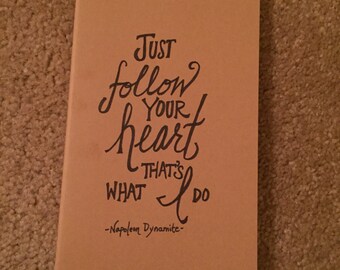 JUST
follow
YOUR
heart
THAT'S
WHAT I DO
-Napoleon Dynamite-